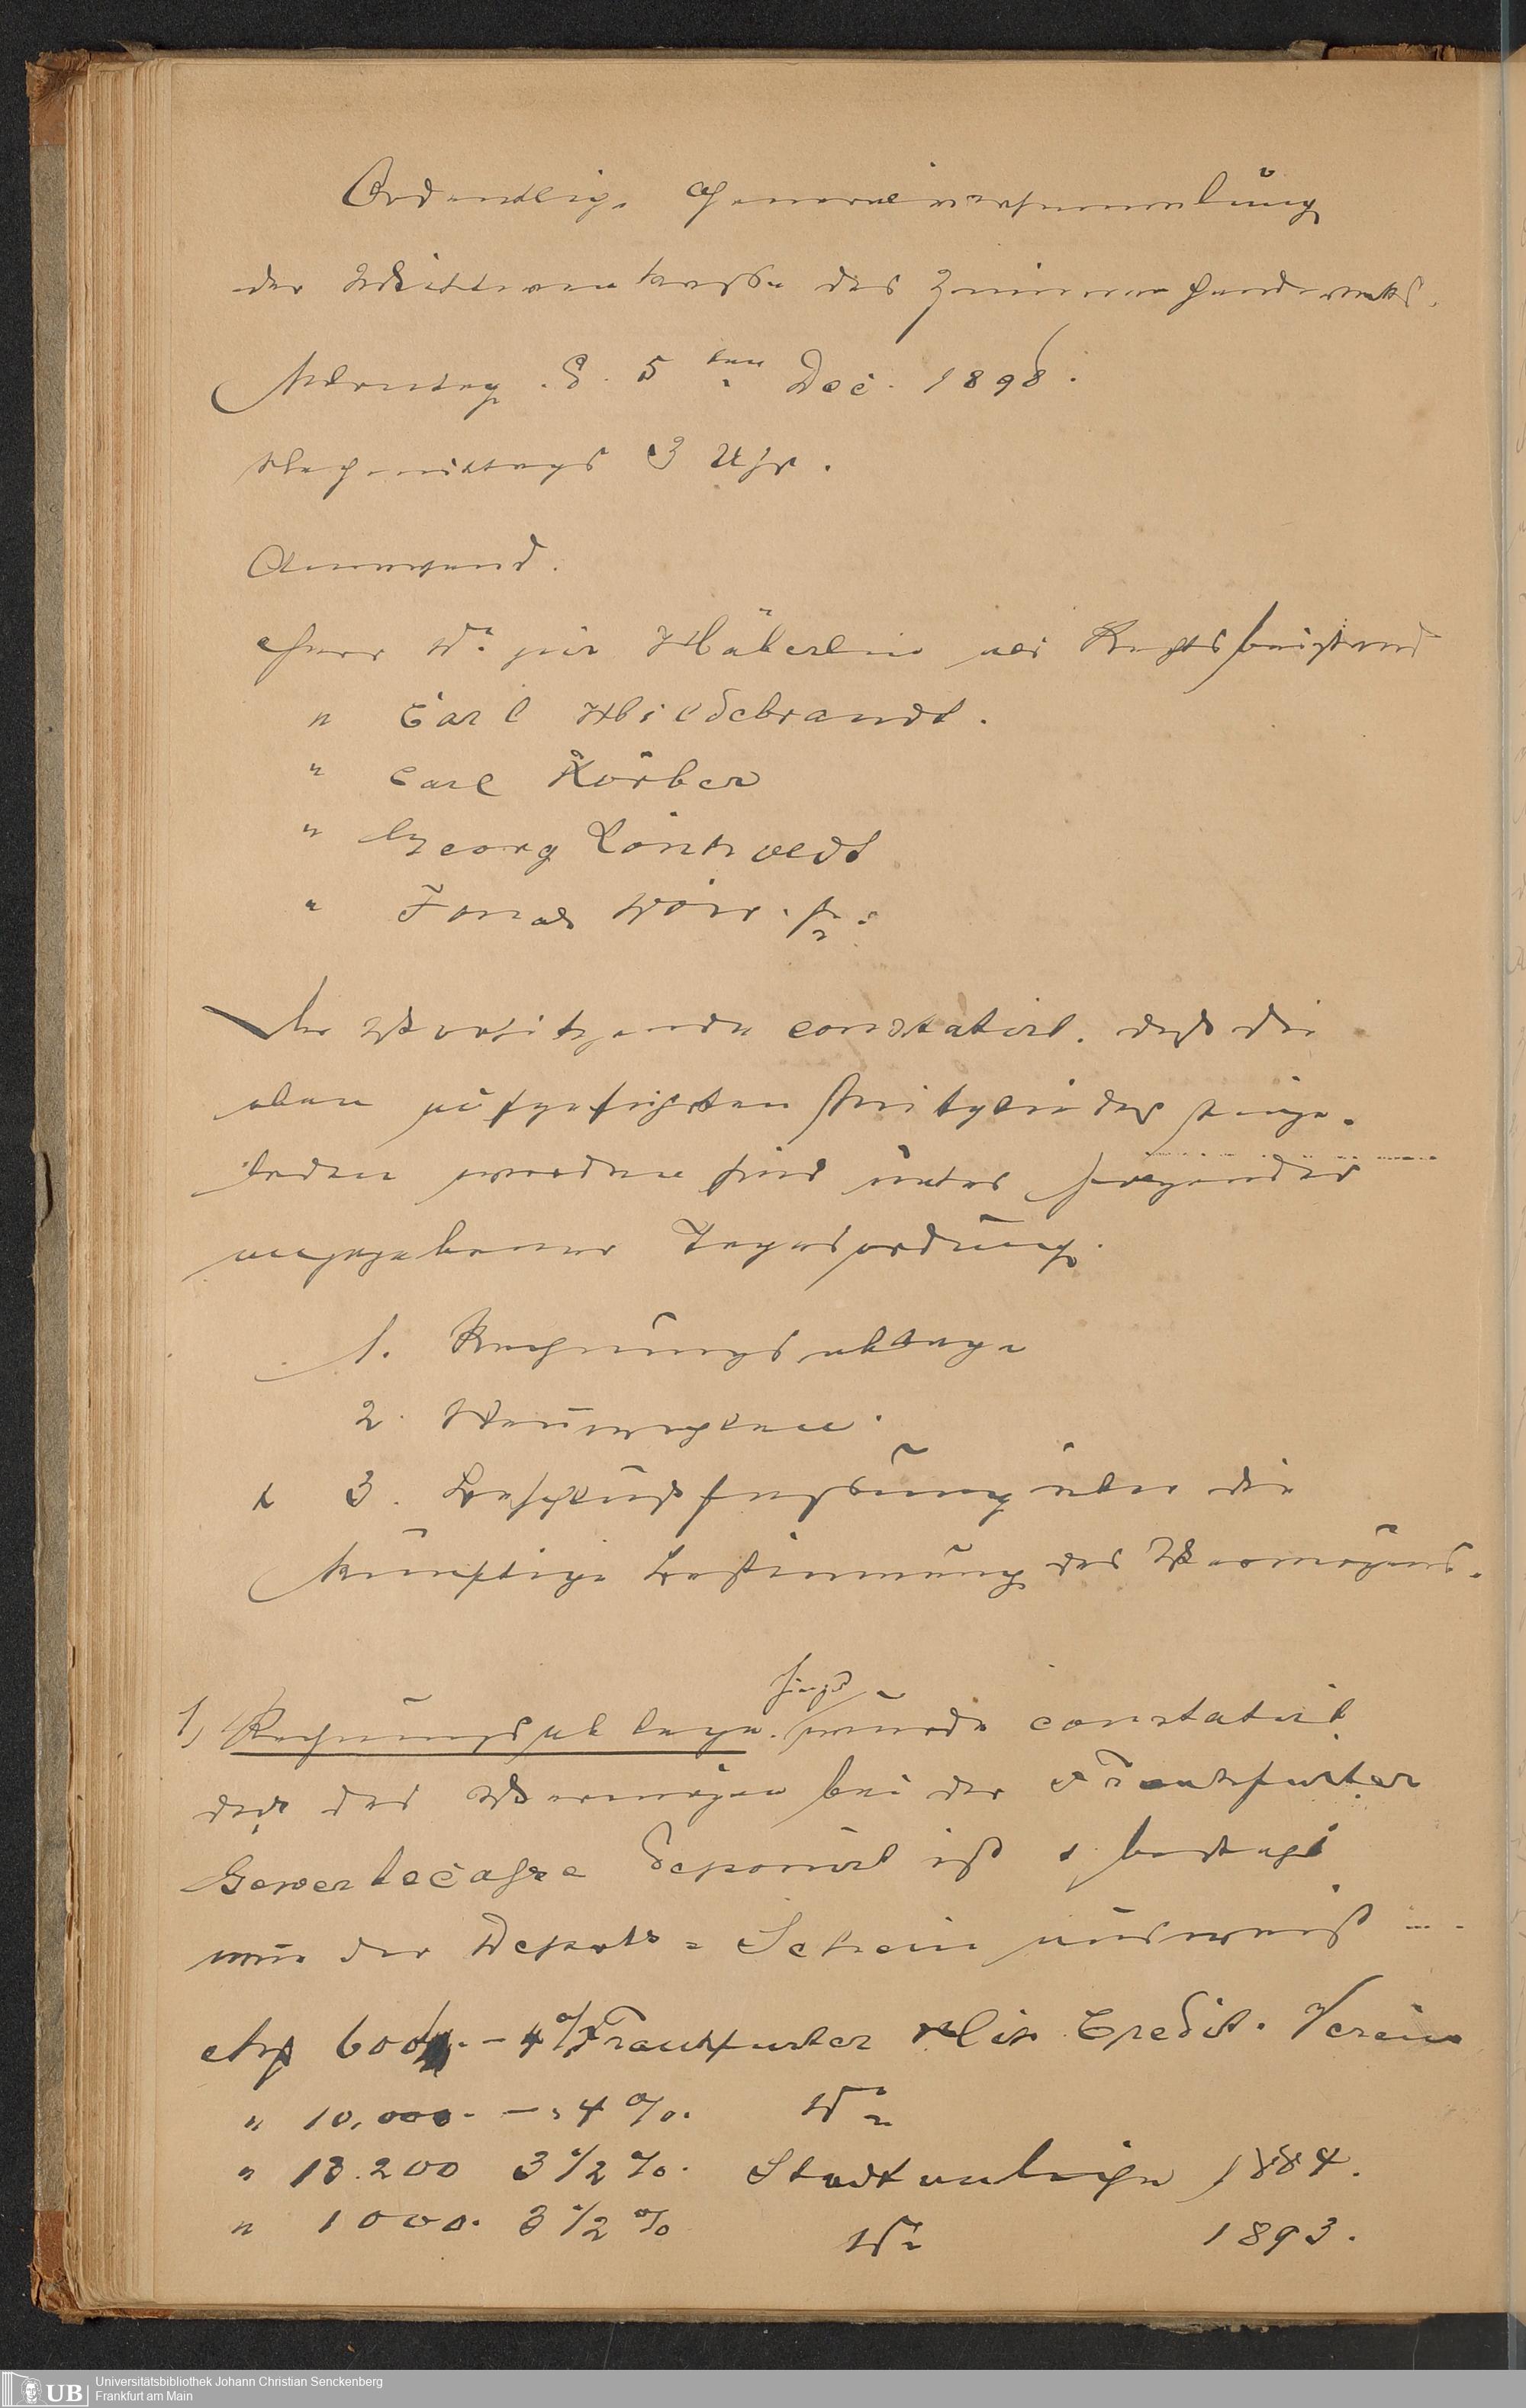 Ordentliche Generalversammlung
der Wittwenkasse des Zimmerhandwerks.
Montag. d. 5ten Dec. 1898.
Nachmittags 3 Uhr.
Anwesend.
Herr Dr. jur Häberlin als Rechtsbeistand
" Carl Hildebrandt.
" Carl Körber
" Georg
" Jonas
Der Vorsitzende constatirt. daß die
oben aufgeführten Mitglieder einge-
laden worden sind unter folgender
angegebener Tagesordnung.
1. Rechnungsablage
2. Neuwahlen.
& 3. Beschlußfassung über die
künftige Bestimmung des Vermögens.
1) Rechnungsablage. wurde constatirt
daß das Vermögen bei der Frankfurter
Gewerbecasse deponirt ist & beträgt
wie der Depots-Schein ausweist
600 - 4% Frankfurter Credit-Verein
" 10,000. - 4%. Do
" 13.200 3 1/2 %. Stadtanleihe 1884.
" 1000. 3 1/2 % Do 1893.
UB Universitätsbibliothek Johann Christian Senckenberg
Frankfurt am Main